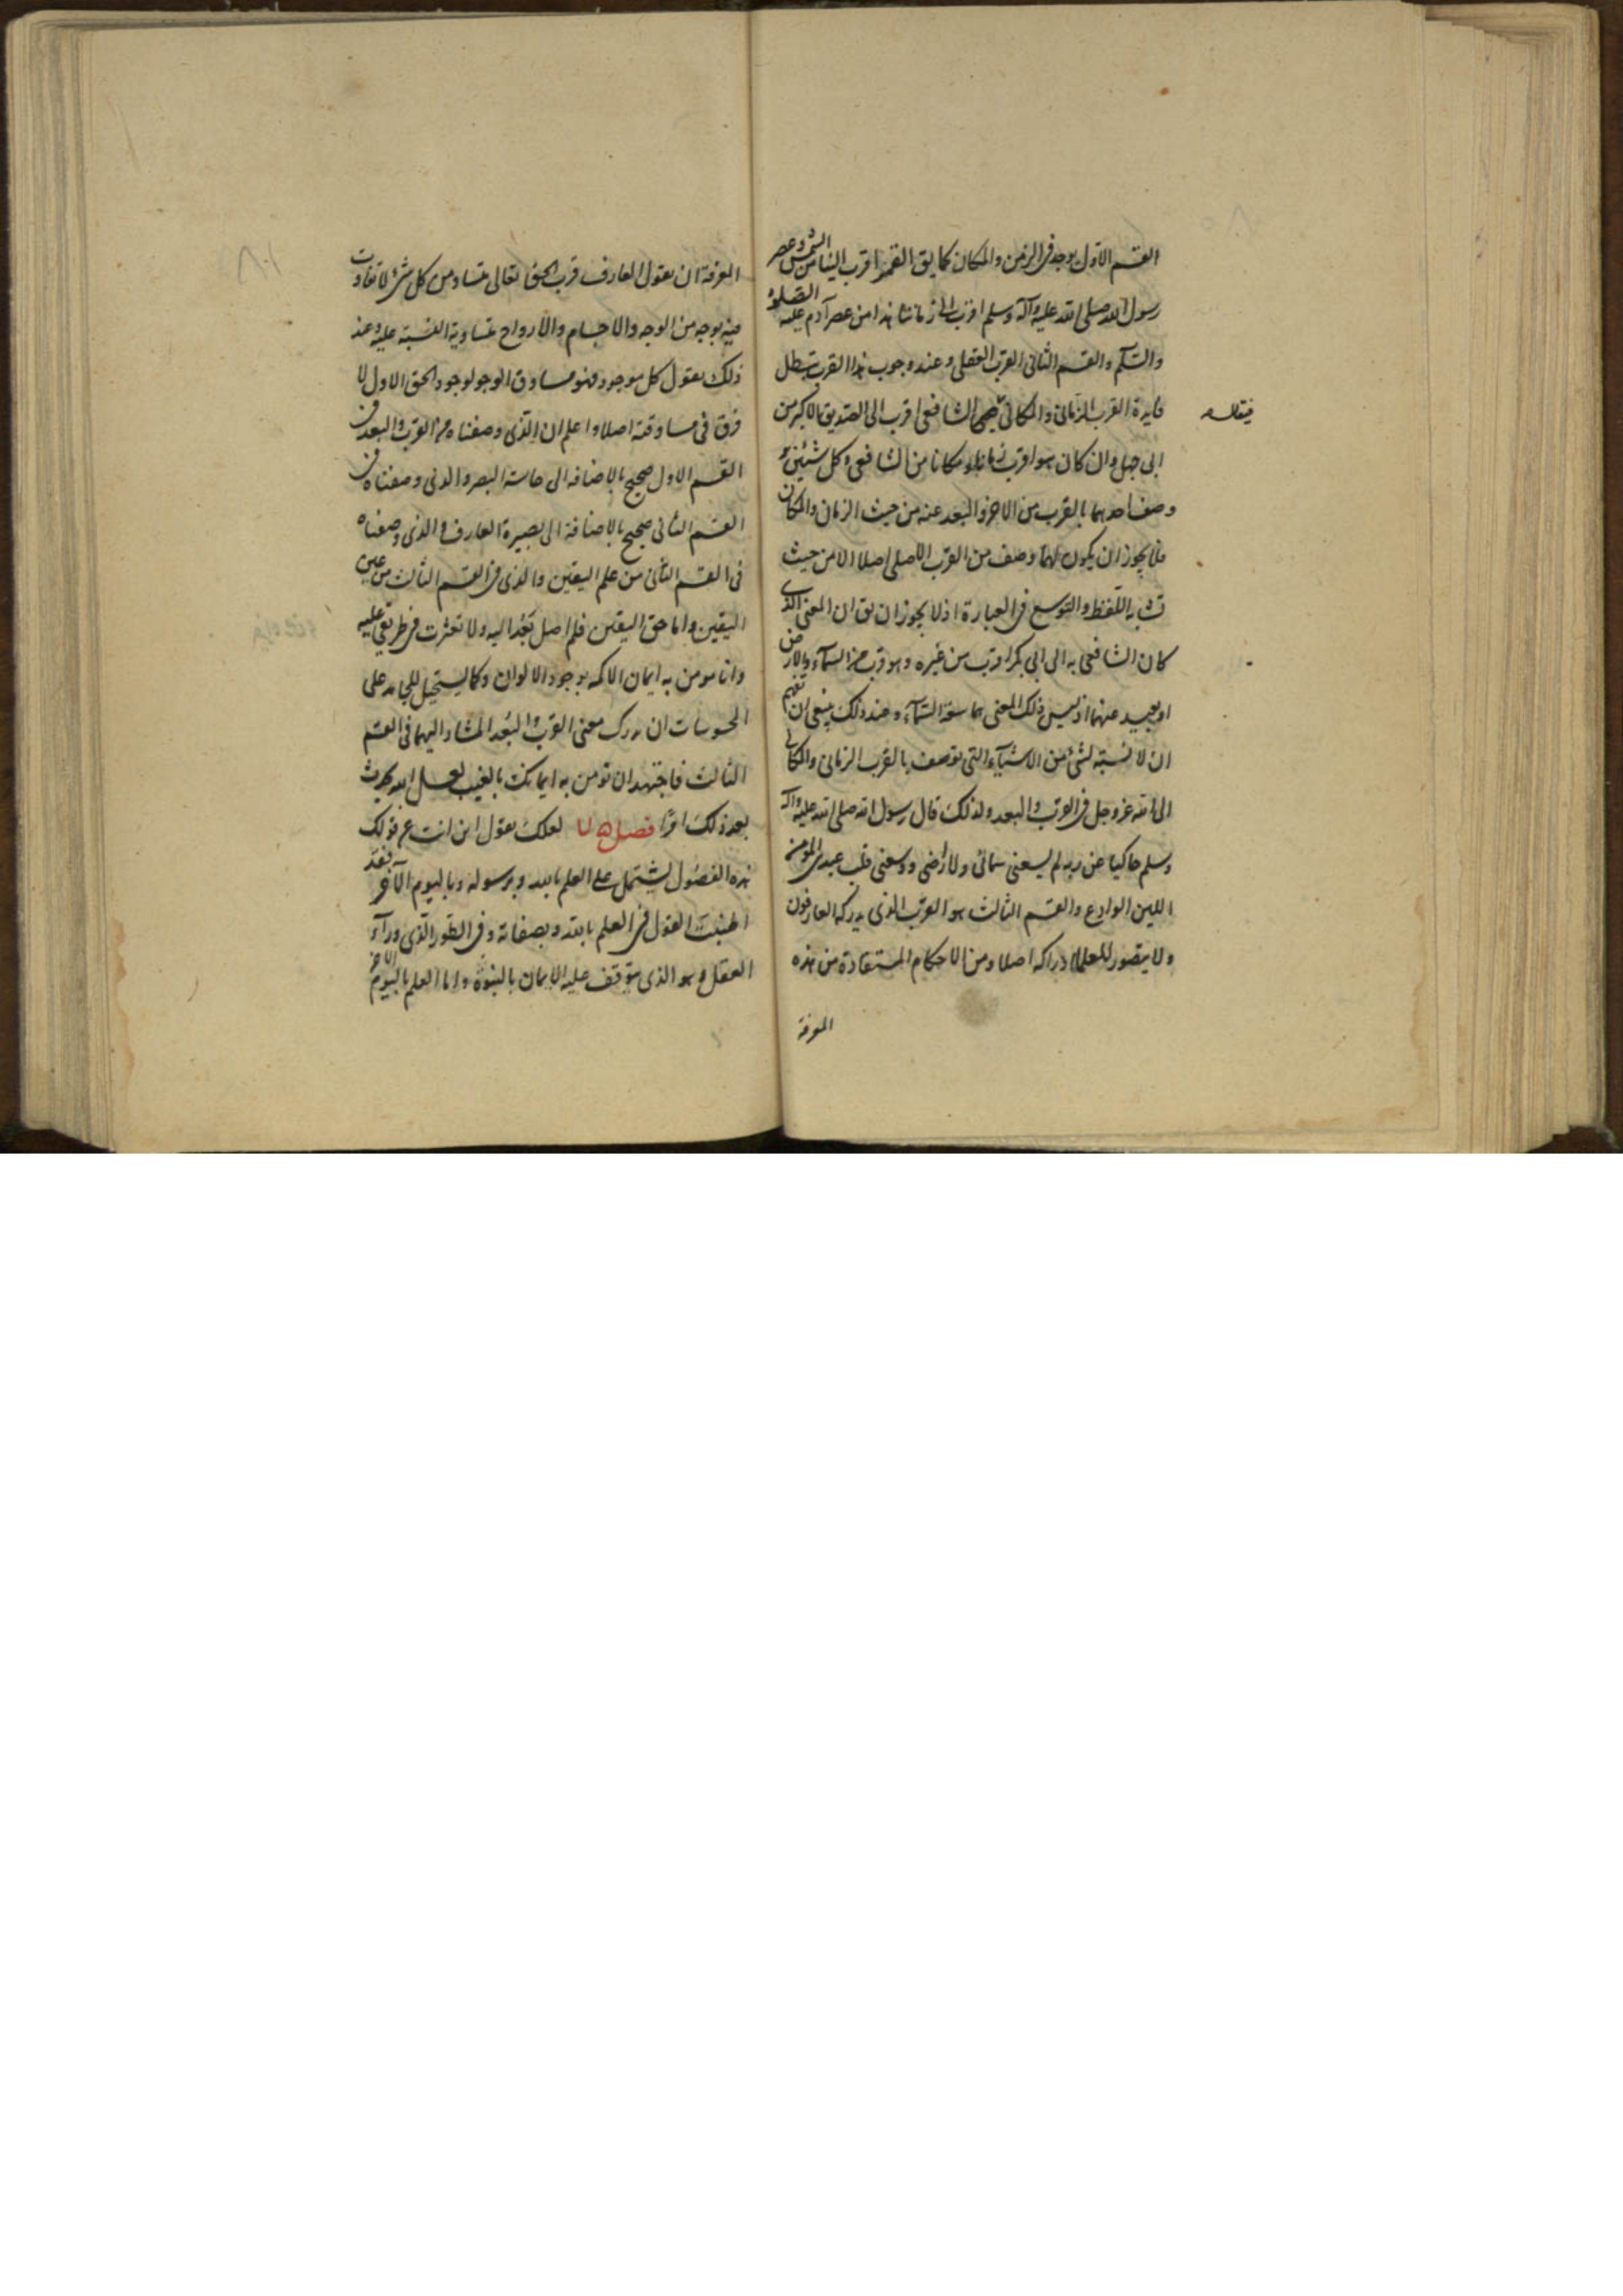 القسم الاول يوجد فى الزمن والمكان كما يق القمر اقرب الينا من الشمس وعصر
رسول الله صلى الله عليه وآله وسلم اقرب الى زماننا هذا من عصر آدم عليه الصلوة
والسلم والقسم الثانى القرب العقلى وعند وجوب هذا القرب تبطل
فايدة القرب الزمانى والمكانى الشافعى اقرب الى الصديق الاكبر من
ابى جهل وان كان هو اقرب زمانا ومكانا من الشافعى وكل شيئين
وصف احدهما بالقرب من الاخر والبعد عنه من حيث الزمان والمكان
فلا يجوز ان يكون لهما وصف من القرب الاصلى اصلا الا من حيث
تشابه اللفظ والتوسع فى العبارة اذ لا يجوز ان يق ان المعنى الذى
كان الشافعى به الى ابى بكر اقرب من غيره وهو قرب من السماء والارض
او بعيد عنهما اذ ليس ذلك المعنى مما سعة السماء وعند ذلك ينبغى ان تفهم
ان لا نسبة لشئ من الاشياء التى توصف بالقرب الزمانى والمكانى
الى الله عز وجل فى القرب والبعد ولذلك قال رسول الله صلى الله عليه وآله
وسلم حاكيا عن ربه لم يسعنى سمائى ولا ارضى ووسعنى قلب عبدى المؤمن
اللين الوادع والقسم الثالث هو القرب الذى يدركه العارفون
ولا يتصور للعلماء ادراكه اصلا ومن الاحكام المستفادة من هذه
المعرفة
فيقال
المعرفة ان يقول العارف قرب الحق تعالى متساو من كل شئ لا تفاوت
فيه بوجه من الوجه والاجسام والارواح متساوية النسبة عليه وعند
ذلك يقول كل موجود فهو مساوق الوجود لوجود الحق الاول لا
فرق فى مساوقته اصلا واعلم ان الذى وصفناه من القرب والبعد فى
القسم الاول صحيح بالاضافه الى حاسة البصر والذى وصفناه فى
القسم الثانى صحيح بالاضافة الى بصيرة العارف والذى وصفناه
فى القسم الثانى من علم اليقين والذى فى القسم الثالث من عين
اليقين واما حق اليقين فلم اصل بعد اليه ولا تعثرت فى طريقى عليه
وانا مومن به ايمان الاكمه بوجود الالوان وكما يستحيل للجامد على
المحسوسات ان يدرك معنى القرب والبعد المشار اليهما فى القسم
الثالث فاجتهد ان تومن به ايمانك بالغيب لعل الله يحدث
بعد ذلك امرا فصل لعلك تقول اين انت عن قولك
هذه الفصول يشتمل على العلم بالله وبرسوله وباليوم الآخر فقد
اطنبت القول فى العلم بالله وبصفاته وفى الطور الذى ورآء
العقل وهو الذى يتوقف عليه الايمان بالنبوة واما العلم باليوم الاخر